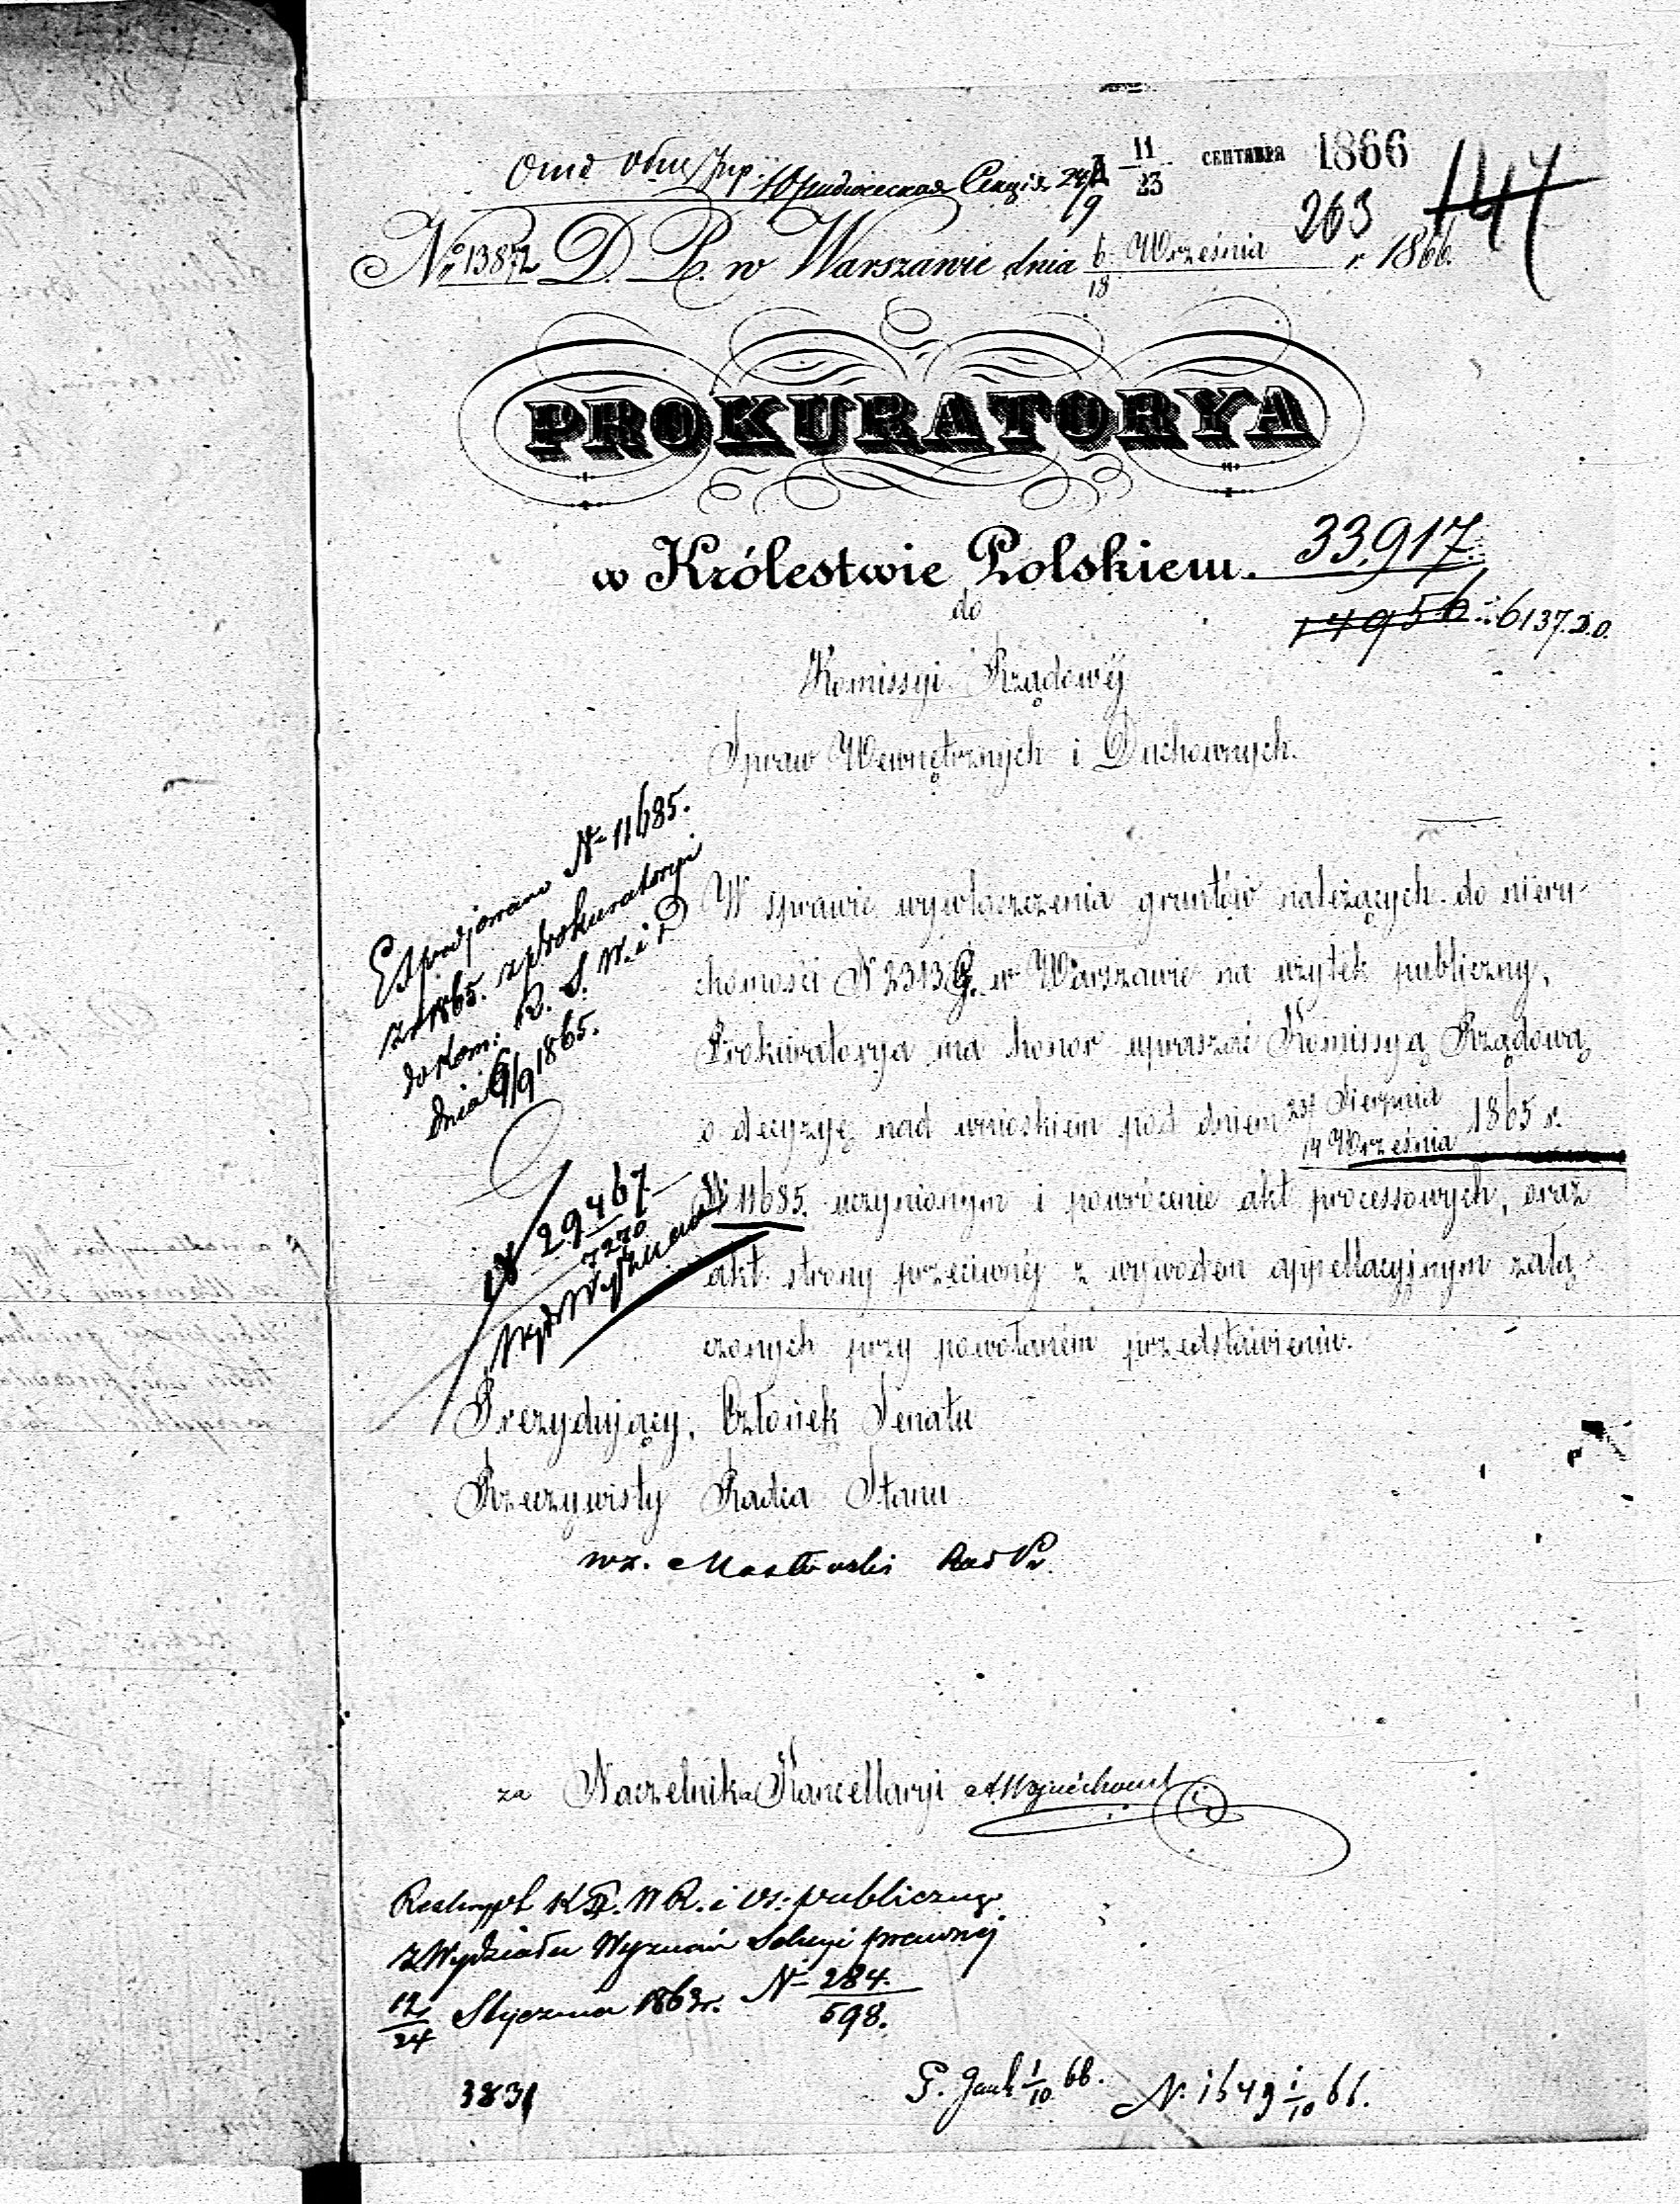 11/23 СЕНТЯБРЯ 1866
Юридическая Секція 24/9
263
144
No 13872 D. P. w Warszawie dnia 6/18 Września r. 1866.
PROKURATORYA
w Królestwie Polskiem.
33,917
14956 6137. D.O.
do
Komissyi Rządowéj
Spraw Wewnętrznych i Duchownych.
Expedjowano N 11685.
z r 1865. z prokuratoryi
do Kom: R. S. W. i D
dnia 6/9 1865.
W sprawie wywłaszczenia gruntów należących do nieru-
chomości N 2313 G. w Warszawie na użytek publiczny,
Prokuratorya ma honor upraszać Kommissyą Rządową
o decyzyę nad wnioskiem pod dniem Sierpnia / 14 Września 1865 r.
N 11685. uczynionym i powrócenie akt processowych, oraz
akt strony przeciwnéj z wywodem appellacyjnym załą-
czonych przy powołaném przedstawieniu.
N 29467
7270
Prezydujący, Członek Senatu
Rzeczywisty Radca Stanu
wz. Masłowski Rad Pr.
za Naczelnika Kancellaryi A. Wojciechowski
Reskrypt K. W. R. i Oś: publicznego
z Wydziału Wyznań Sekcyi prawnéj
12/24 Stycznia 1863 r. N 284./598.
3831
1/10 66. N. 1649 1/10 66.